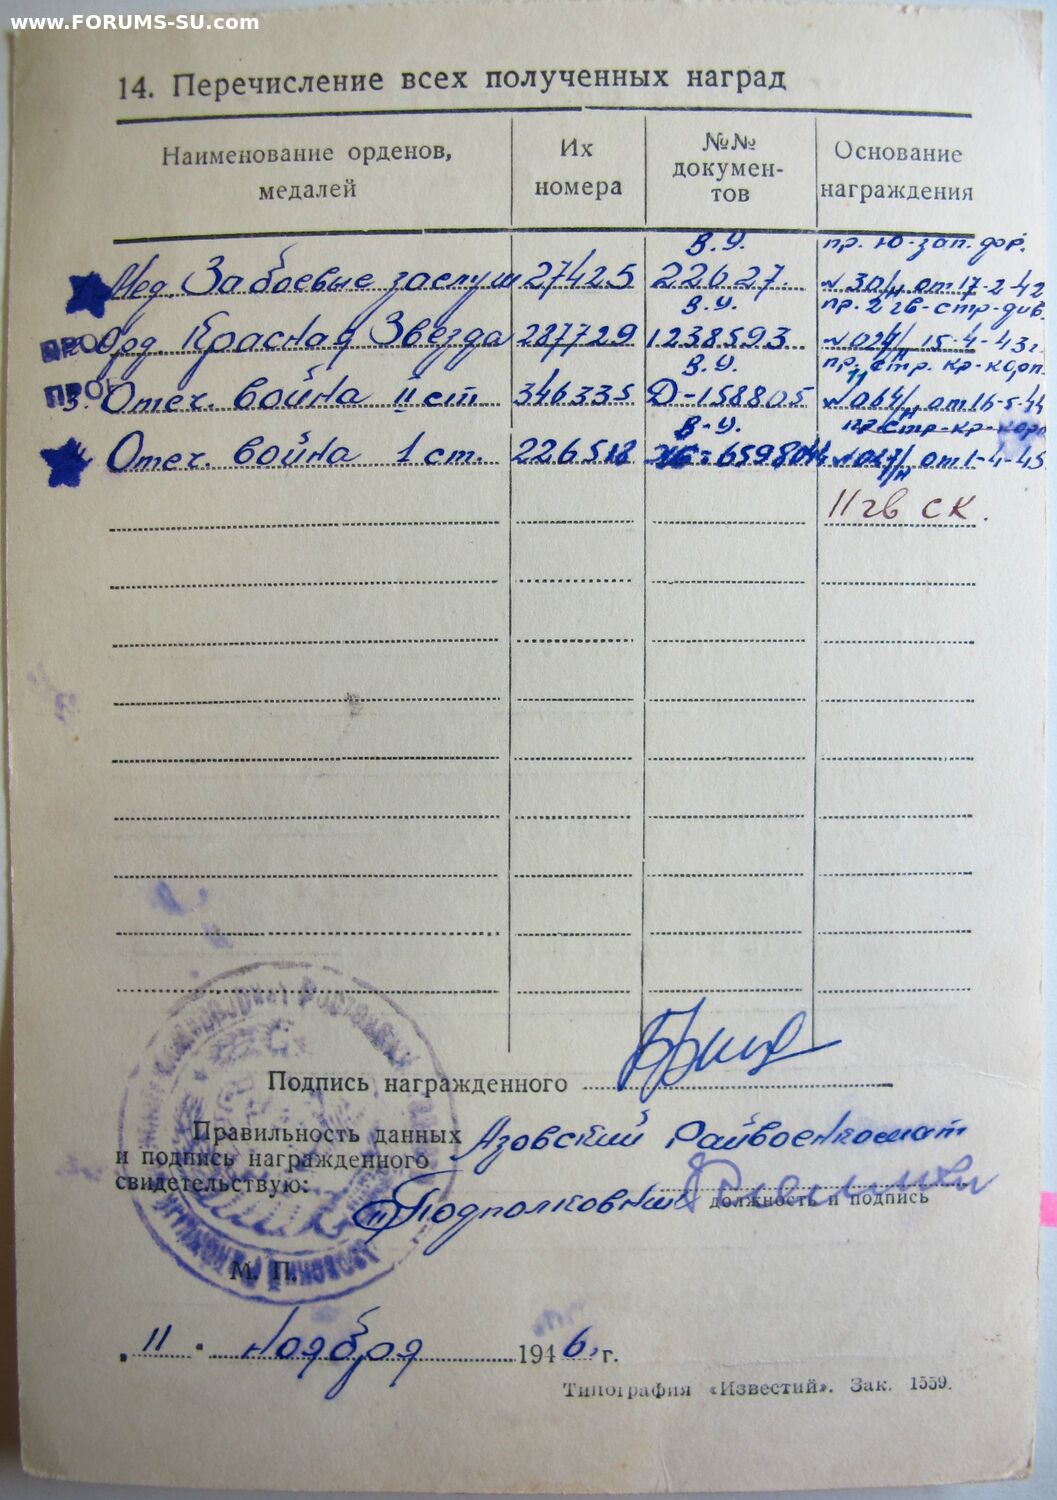 www.FORUMS-SU.com
14. Перечисление всех полученных наград
Наименование орденов, медалей
Их номера
№№ докумен-тов
Основание награждения
В.У. пр. Ю-зап. фр.
Мед. За боевые заслуги 27425 22027. №30/н от 17-2-42
В.У. пр. 2 гв-стр-див.
Орд. Красная Звезда 287729 1238593 №024/н 15-4-43г.
В.У. пр. 11 стр. кр-корп.
3. Отеч. война II ст 346335 Д-158805 №064/н от 16-5-44
В-У. пр стр-кр-корп
Отеч. война 1 ст. 226518 №017/н от 1-4-45
11 гв СК.
Подпись награжденного
Правильность данных Азовский Райвоенкомат
и подпись награжденного
свидетельствую:
Подполковник должность и подпись
М. П.
„11" ноября 1946 г.
Типография «Известий». Зак. 1559.